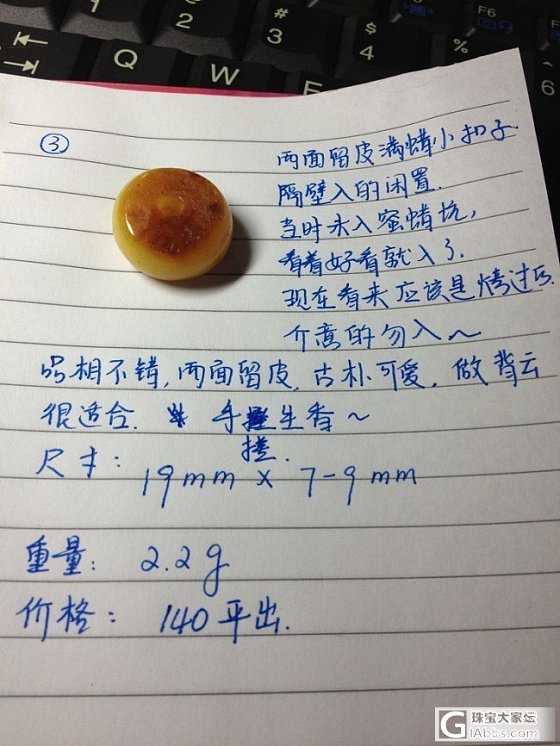 Q W E
# 3
$ 4
% 5
F6
6
③
两面留皮满蜡小扣子.
隔壁入的闲置.
当时未入蜜蜡坑，
看着好看就入了.
现在看来应该是烤过
介意的勿入～
品相不错，两面留皮，古朴可爱，做背云
很适合. 手 生香～
搓.
尺寸： 19mm × 7-9mm
重量： 2.2g
价格： 140平出.
珠宝大家坛
GIAbbs.com